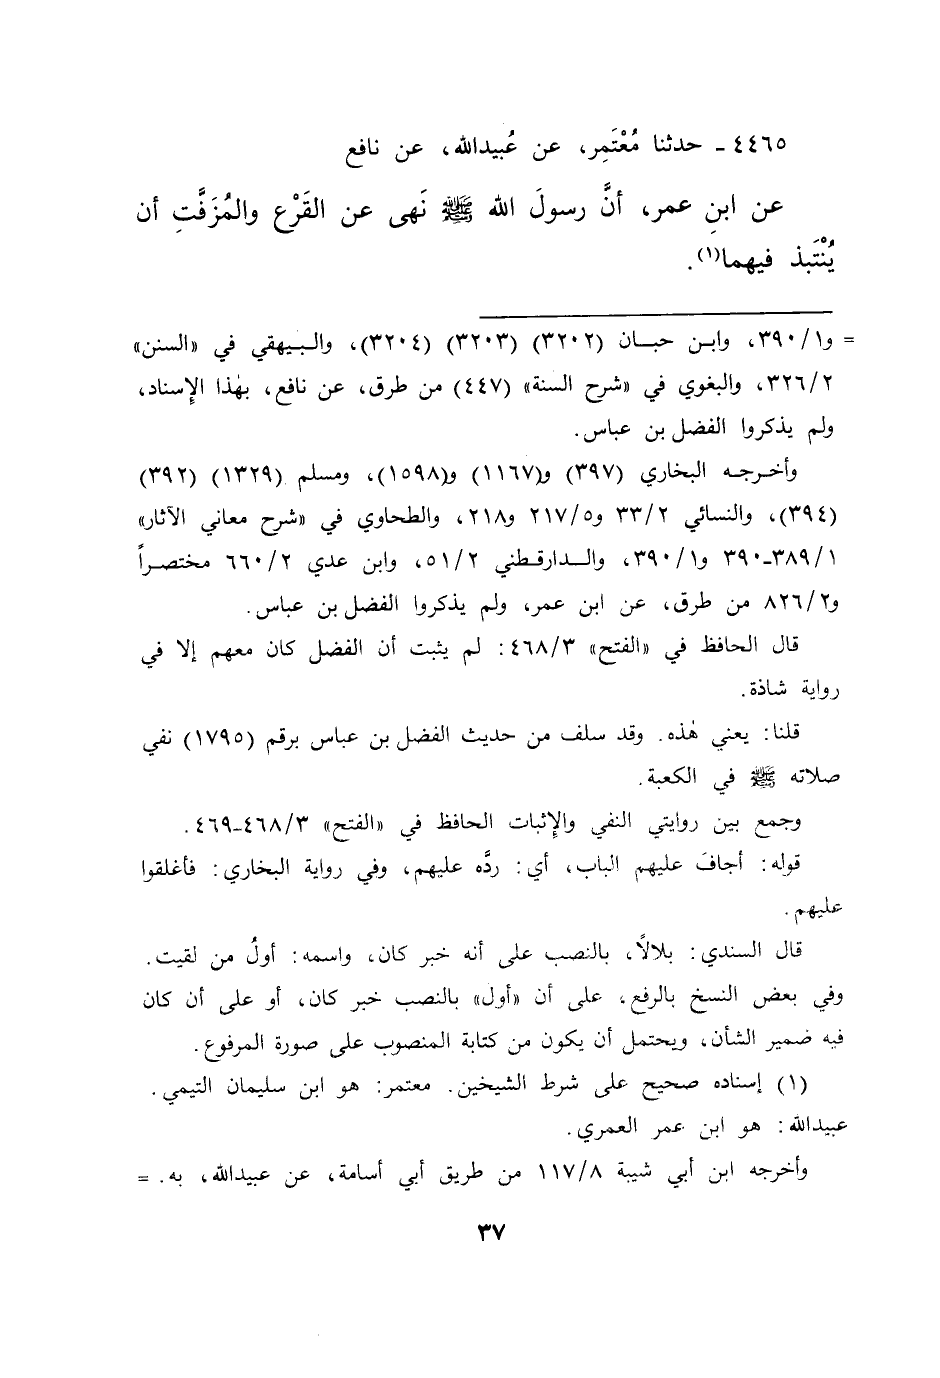 ٤٤٦٥ ـ حدثنا مُعْتَمِر، عن عُبيدالله، عن نافع
عن ابنِ عمر، أنَّ رسولَ الله ﷺ نَهى عن القَرْع والمُزَفَّتِ أن
يُنْتَبذ فيهما(١).
= و٣٩٠/١، وابـن حبـان (٣٢٠٢) (٣٢٠٣) (٣٢٠٤)، والـبـيهقي في «السنن»
٣٢٦/٢، والبغوي في «شرح السنة» (٤٤٧) من طرق، عن نافع، بهٰذا الإِسناد،
ولم يذكروا الفضل بن عباس.
وأخـرجـه البخاري (٣٩٧) و(١١٦٧) و(١٥٩٨)، ومسلم (١٣٢٩) (٣٩٢)
(٣٩٤)، والنسائي ٣٣/٢ و٢١٧/٥ و٢١٨، والطحاوي في «شرح معاني الآثار»
٣٨٩/١ـ٣٩٠ و٣٩٠/١، والـدارقـطني ٥١/٢، وابن عدي ٦٦٠/٢ مختصـراً
و٨٢٦/٢ من طرق، عن ابن عمر، ولم يذكروا الفضل بن عباس.
قال الحافظ في «الفتح» ٤٦٨/٣: لم يثبت أن الفضل كان معهم إلا في
رواية شاذة.
قلنا: يعني هٰذه. وقد سلف من حديث الفضل بن عباس برقم (١٧٩٥) نفي
صلاته ﷺ في الكعبة.
وجمع بين روايتي النفي والإِثبات الحافظ في «الفتح» ٤٦٨/٣ـ٤٦٩.
قوله: أجافَ عليهم الباب، أي: ردَّه عليهم، وفي رواية البخاري: فأغلقوا
عليهم.
قال السندي: بلالاً، بالنصب على أنه خبر كان، واسمه: أولُ من لقيت.
وفي بعض النسخ بالرفع، على أن «أول» بالنصب خبر كان، أو على أن كان
فيه ضمير الشأن، ويحتمل أن يكون من كتابة المنصوب على صورة المرفوع.
(١) إسناده صحيح على شرط الشيخين. معتمر: هو ابن سليمان التيمي.
عبيدالله: هو ابن عمر العمري.
وأخرجه ابن أبي شيبة ١١٧/٨ من طريق أبي أسامة، عن عبيدالله، به. =
٣٧